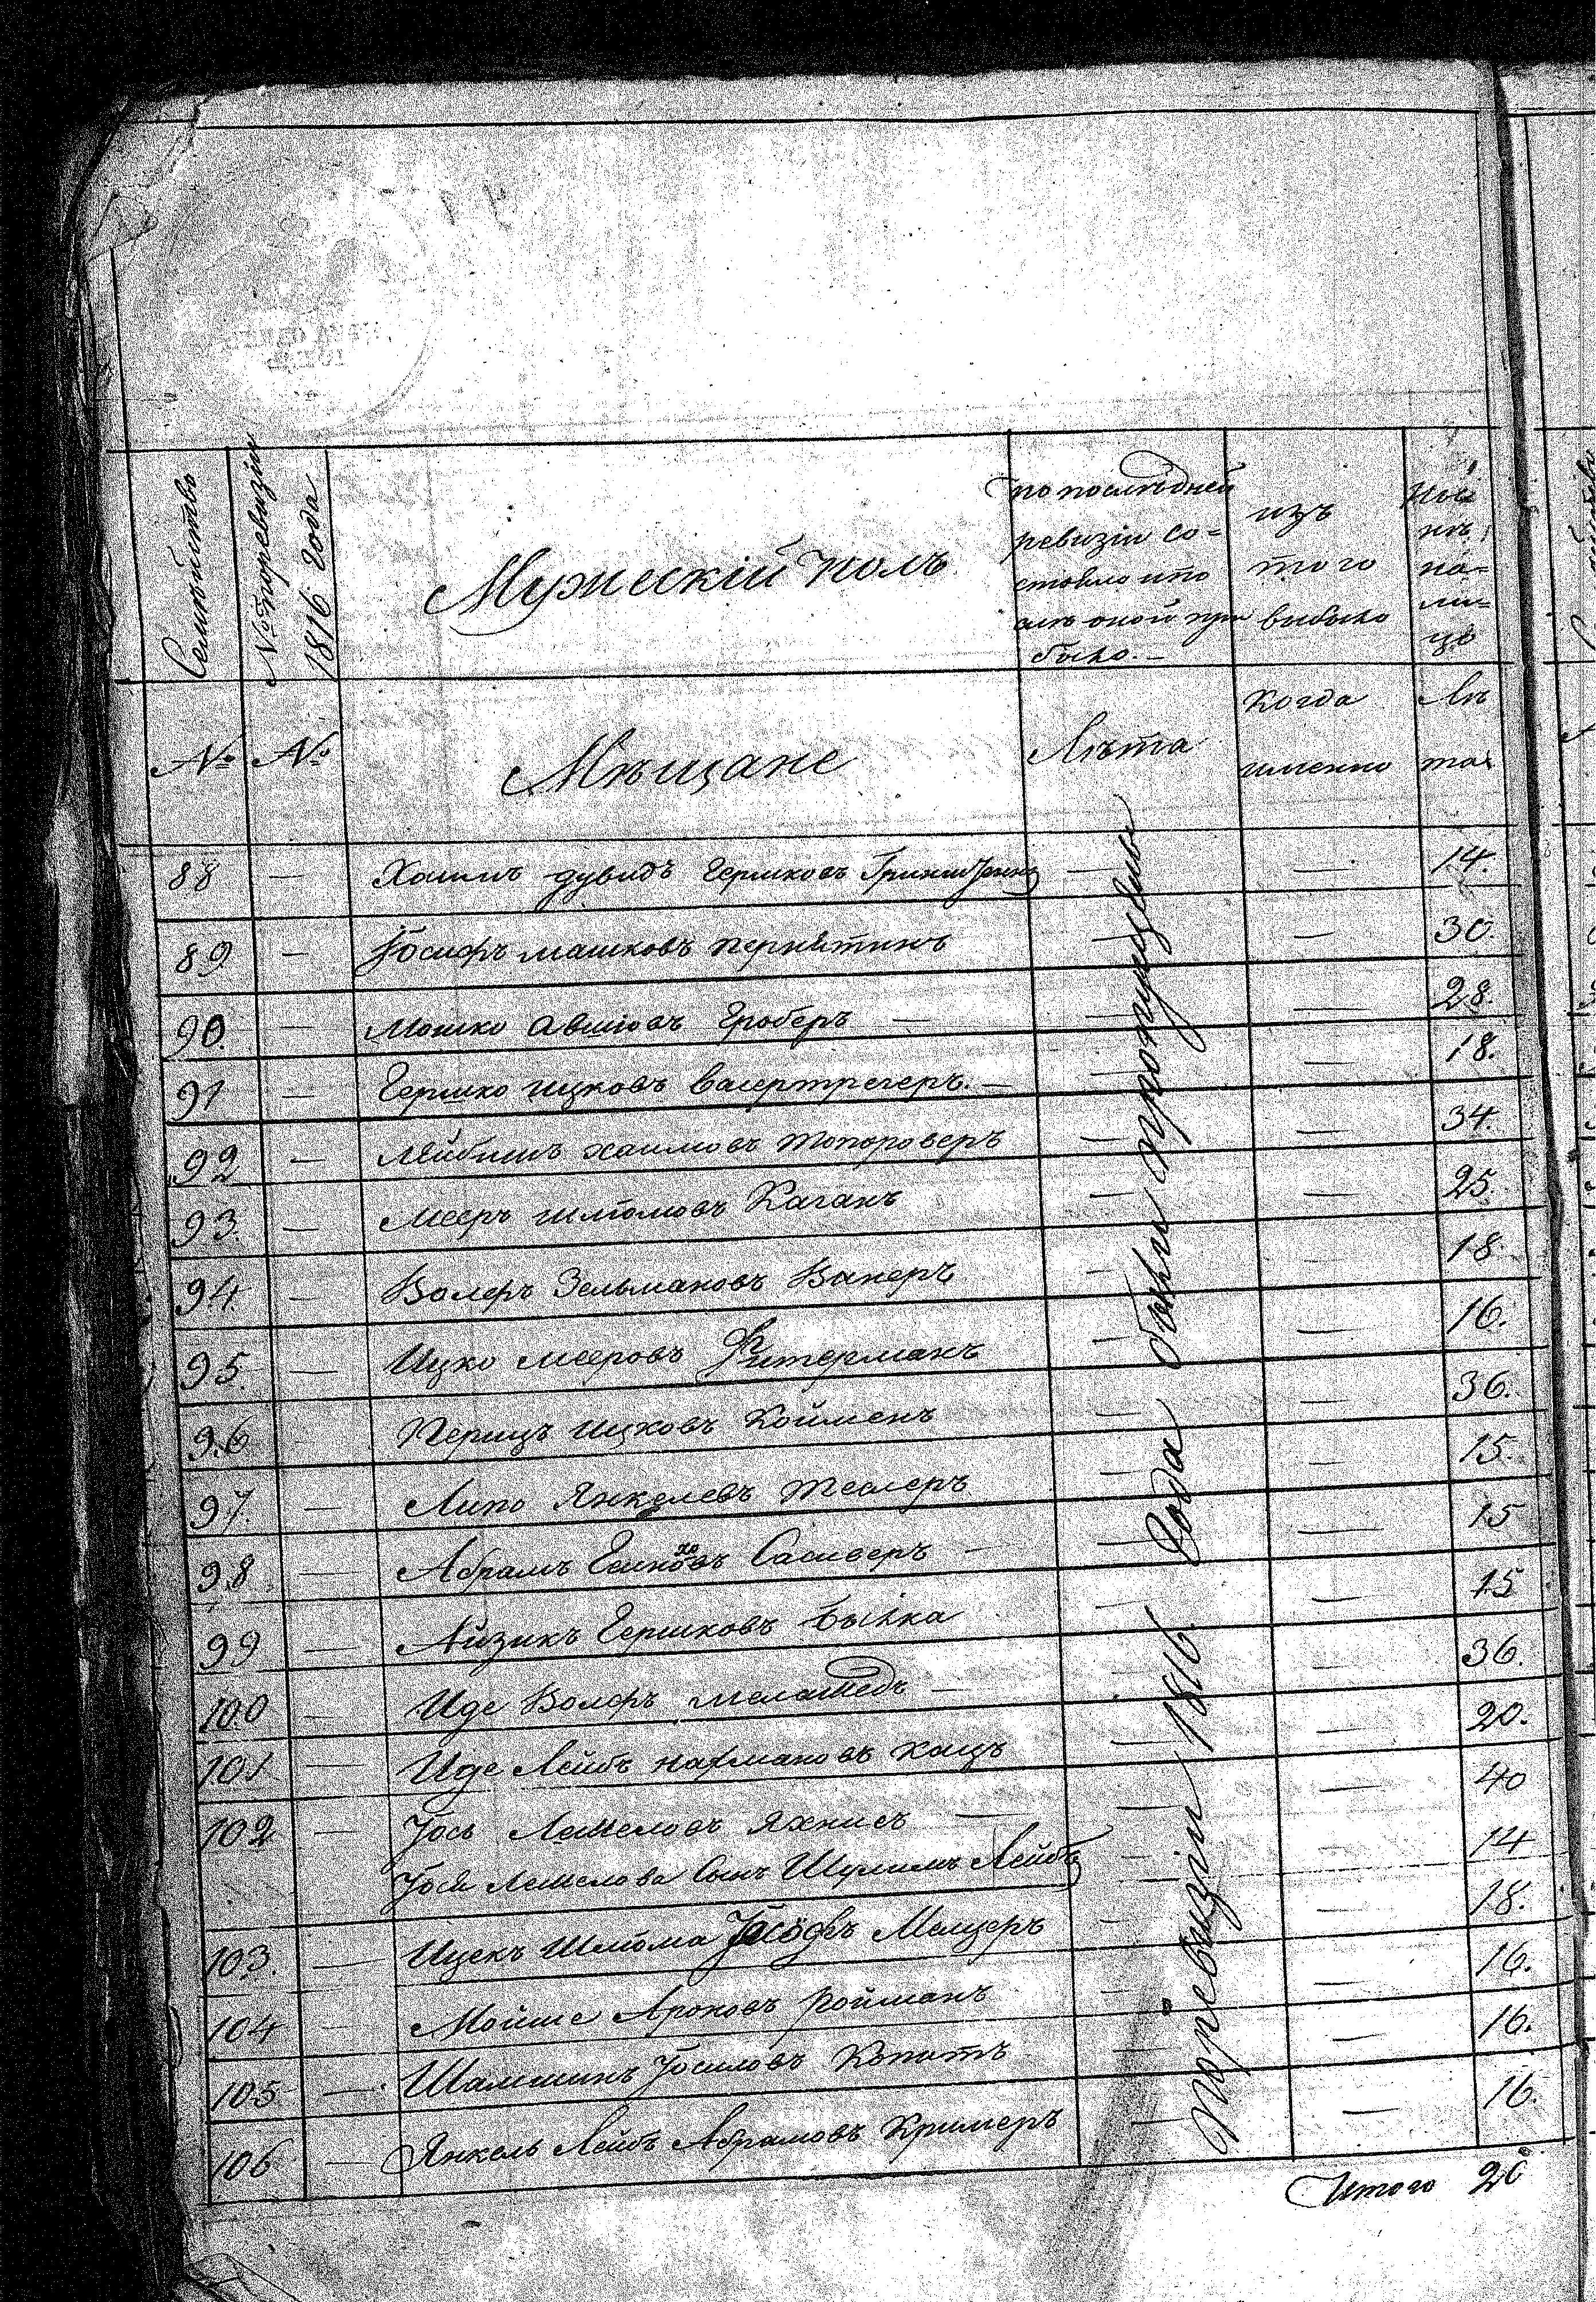 Семейство
№ по ревизіи 1816 Года
Мужескій полъ
по последней ревизіи состояло и по слѣ оной при было.—
изъ того выбыло
Ныне на лицо
№ №
Мѣщане
Лѣта
когда именно
Лета
88 — Хаимъ дувидъ Гершковъ — — 14.
89 — Іосифъ машковъ пернатинъ — — 30.
90. — Мошко Авшіовъ Гроберъ — — — 28.
91 — Гершко ицковъ васертрегеръ. — — — 18.
92 — Лейбишъ хаимовъ топороверъ — — 34.
93. — Мееръ шліомовъ Каганъ — — 25.
94. — Волфъ Зельмановъ Ванеръ — — 18.
95. — Ицко мееровъ Фитерманъ — — 16.
96 Перицъ ицковъ Койменъ — — 36.
97. — Липо Янкелевъ теслеръ — — 15.
98 — Абрамъ Сасиверъ — — — 15
99 — Айзикъ Гершковъ Былка — — 15
100 — Иде Волфъ меламедъ — — 36.
101 — Иде Лейбъ нахмановъ кацъ — — 20.
102 — Іось Лейзеловъ Яхнисъ — — — 40
Іося Лейзелова Сынъ Шулимъ Лейбъ — — 14
103. — Ицекъ Шліома Іосіофъ Мелцеръ — — 18.
104 — Мойше Ароновъ Ройманъ — — 16.
105 — Іосиловъ Копытъ — — 16.
106 — Янкель Лейбъ Абрамовъ Кримеръ — — 16.
По ревизіи 1816 Года были пропущены
Итого 20